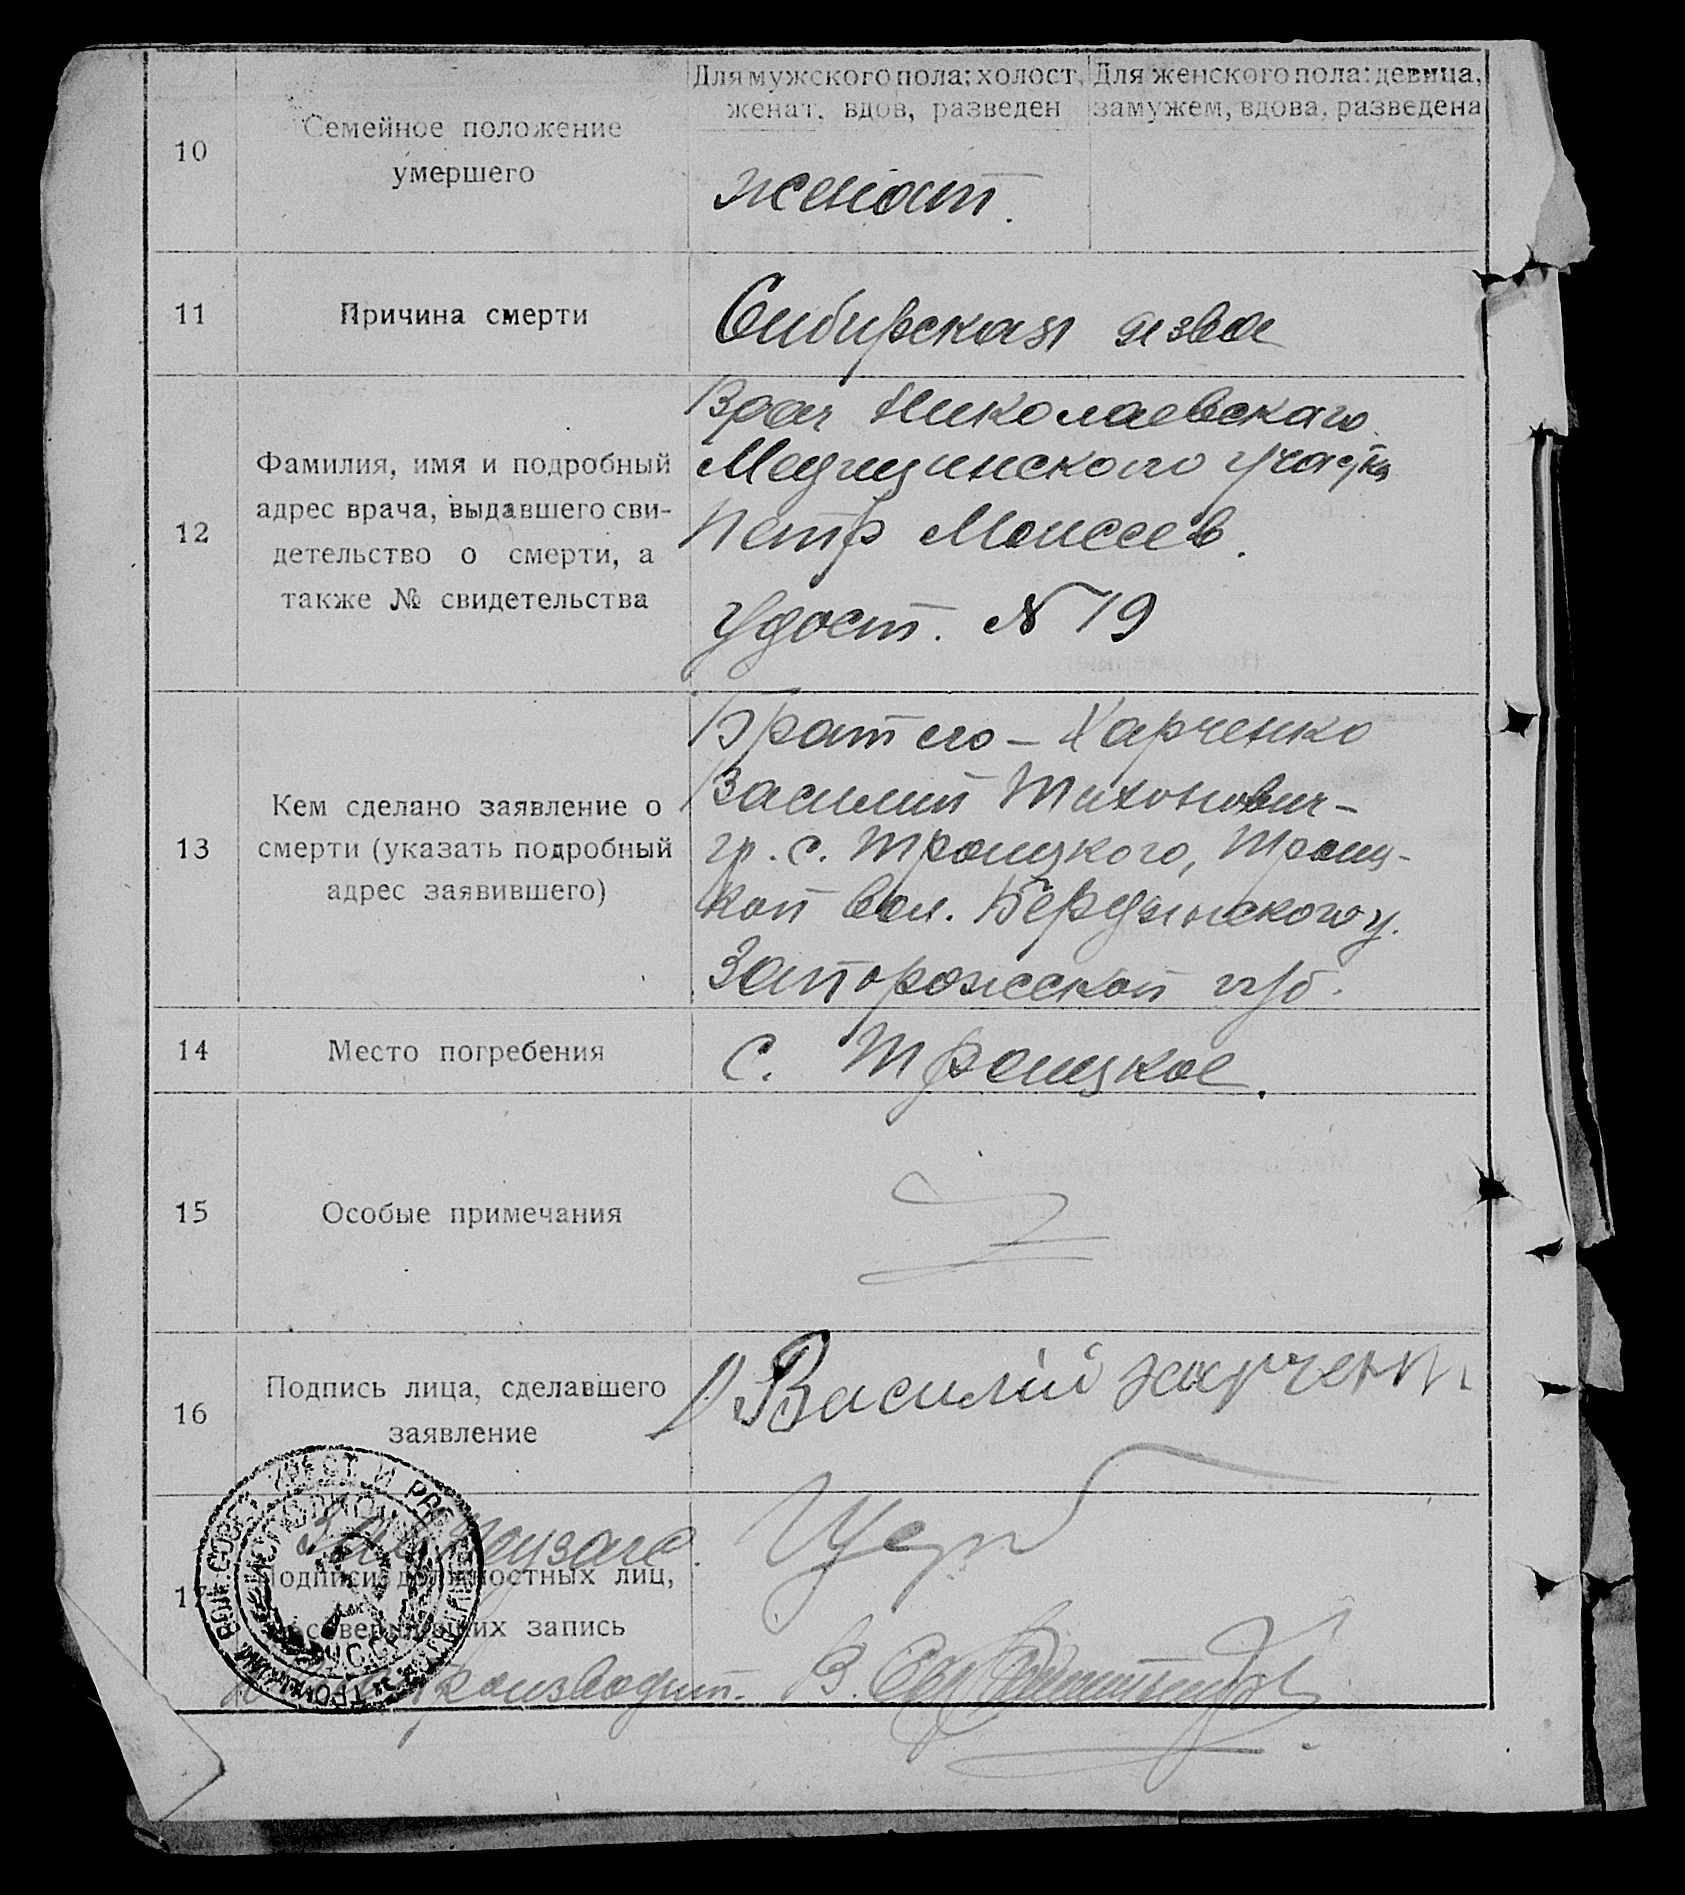 Для мужского пола: холост, женат, вдов, разведен
Для женского пола: девица, замужем, вдова, разведена
10
Семейное положение
умершего
женат.
11
Причина смерти
Сибирская язва
12
Фамилия, имя и подробный
адрес врача, выдавшего сви-
детельство о смерти, а
также № свидетельства
Врач Николаевскаго
Медицинского участка
Петр Моисеев.
Удост. № 19
13
Кем сделано заявление о
смерти (указать подробный
адрес заявившего)
Брат его – Харченко
Василий Тихонович –
гр. с. Троицкого, Троиц-
кой вол. Бердянского у.
Запорожской губ.
14
Место погребения
с. Троицкое.
15
Особые примечания
16
Подпись лица, сделавшего
заявление
Василий харченко
17
Зав.
Подписи должностных лиц,
совершивших запись
В.